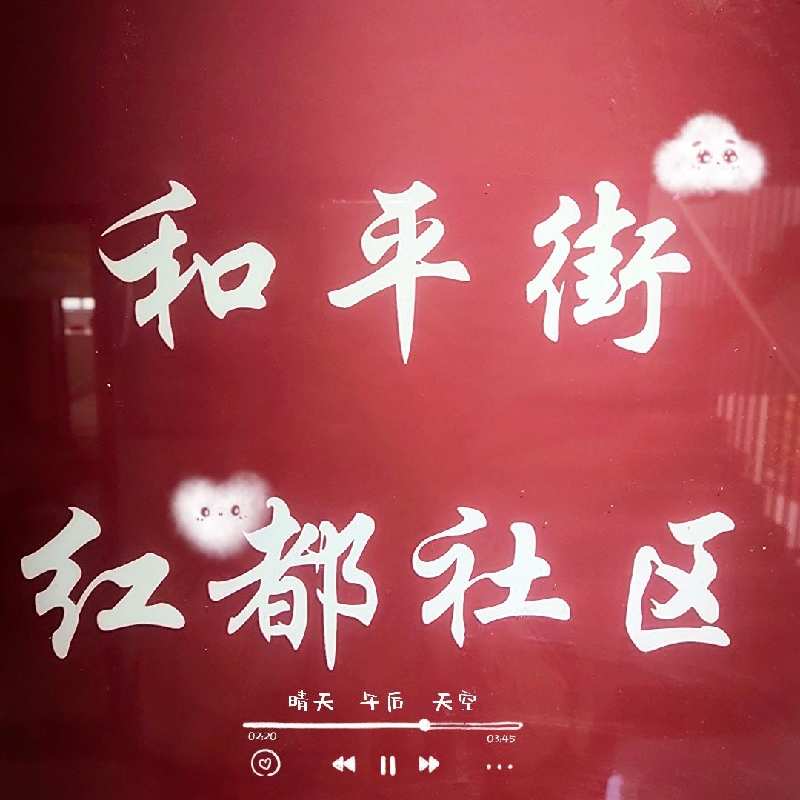 和平街
红都社区
晴天 午后 天空
02:20 03:45